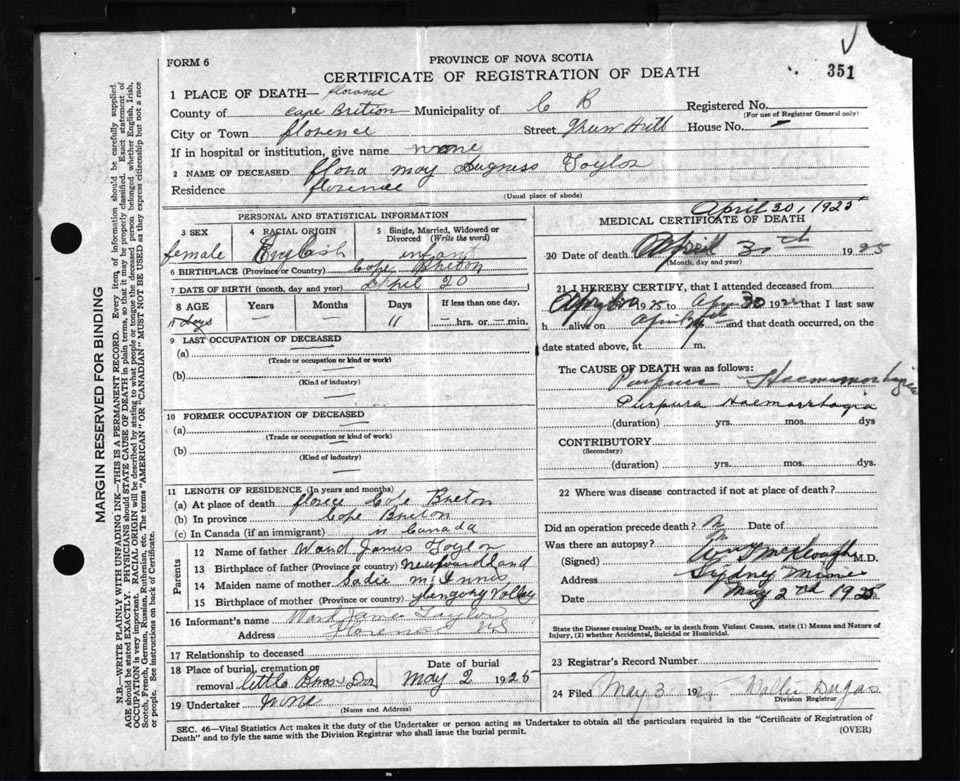 351
FORM 6
PROVINCE OF NOVA SCOTIA
CERTIFICATE OF REGISTRATION OF DEATH
1 PLACE OF DEATH— florence
County of Cape Brition Municipality of C B Registered No.
(For use of Registrar General only)
City or Town florence Street Hill House No. —
If in hospital or institution, give name none
2 NAME OF DECEASED flona may Taylor
Residence florence
(Usual place of abode)
April 30, 1925
PERSONAL AND STATISTICAL INFORMATION
3 SEX 4 RACIAL ORIGIN 5 Single, Married, Widowed or Divorced (Write the word)
female English infant
6 BIRTHPLACE (Province or Country) Cope Breton
7 DATE OF BIRTH (month, day and year) April 20
8 AGE Years Months Days If less than one day,
11 days — — 11 — hrs. or — min.
9 LAST OCCUPATION OF DECEASED
(a) —
(Trade or occupation or kind of work)
(b) —
(Kind of industry)
10 FORMER OCCUPATION OF DECEASED
(a) —
(Trade or occupation or kind of work)
(b) —
(Kind of industry)
11 LENGTH OF RESIDENCE (In years and months)
(a) At place of death florece Cope Breton
(b) In province Cope Breton
(c) In Canada (if an immigrant) in Canada
Parents
12 Name of father Ward James Toylor
13 Birthplace of father (Province or country) Newfoundland
14 Maiden name of mother Sadie McInnis
15 Birthplace of mother (Province or country) Volley
16 Informant's name Ward Jame Taylor
Address Florence N S
17 Relationship to deceased
18 Place of burial, cremation or removal little Bras Dor Date of burial May 2 1925
19 Undertaker None
(Name and Address)
MEDICAL CERTIFICATE OF DEATH
20 Date of death April 30th 1925
(Month, day and year)
21 I HEREBY CERTIFY, that I attended deceased from
1925 to Apr 30 192 that I last saw
h alive on April and that death occurred, on the
date stated above, at m.
The CAUSE OF DEATH was as follows:
Purpura Haemorrhagica
Purpura Haemorrhagia
(duration) yrs. mos. dys
CONTRIBUTORY
(Secondary)
(duration) yrs. mos. dys.
22 Where was disease contracted if not at place of death?
Did an operation precede death? No Date of
Was there an autopsy?
(Signed) McKeough M.D.
Address Sydney Mines
Date May 2nd 1925
State the Disease causing Death, or in death from Violent Causes, state (1) Means and Nature of
Injury, (2) whether Accidental, Suicidal or Homicidal.
23 Registrar's Record Number
24 Filed May 3 1925 Wallis Dugas
Division Registrar
SEC. 46—Vital Statistics Act makes it the duty of the Undertaker or person acting as Undertaker to obtain all the particulars required in the "Certificate of Registration of
Death" and to fyle the same with the Division Registrar who shall issue the burial permit.
(OVER)
MARGIN RESERVED FOR BINDING
N.B.—WRITE PLAINLY WITH UNFADING INK—THIS IS A PERMANENT RECORD. Every item of information should be carefully supplied.
AGE should be stated EXACTLY. PHYSICIANS should STATE CAUSE OF DEATH in plain terms, so that it may be properly classified. Exact statement of
OCCUPATION is very important. RACIAL ORIGIN will be described by stating to what people or tongue the deceased person belonged whether English, Irish,
Scotch, French, German, Russian, Ruthenian, etc. The terms "AMERICAN" OR "CANADIAN" MUST NOT BE USED as they express citizenship but not a race
or people. See instructions on back of Certificate.